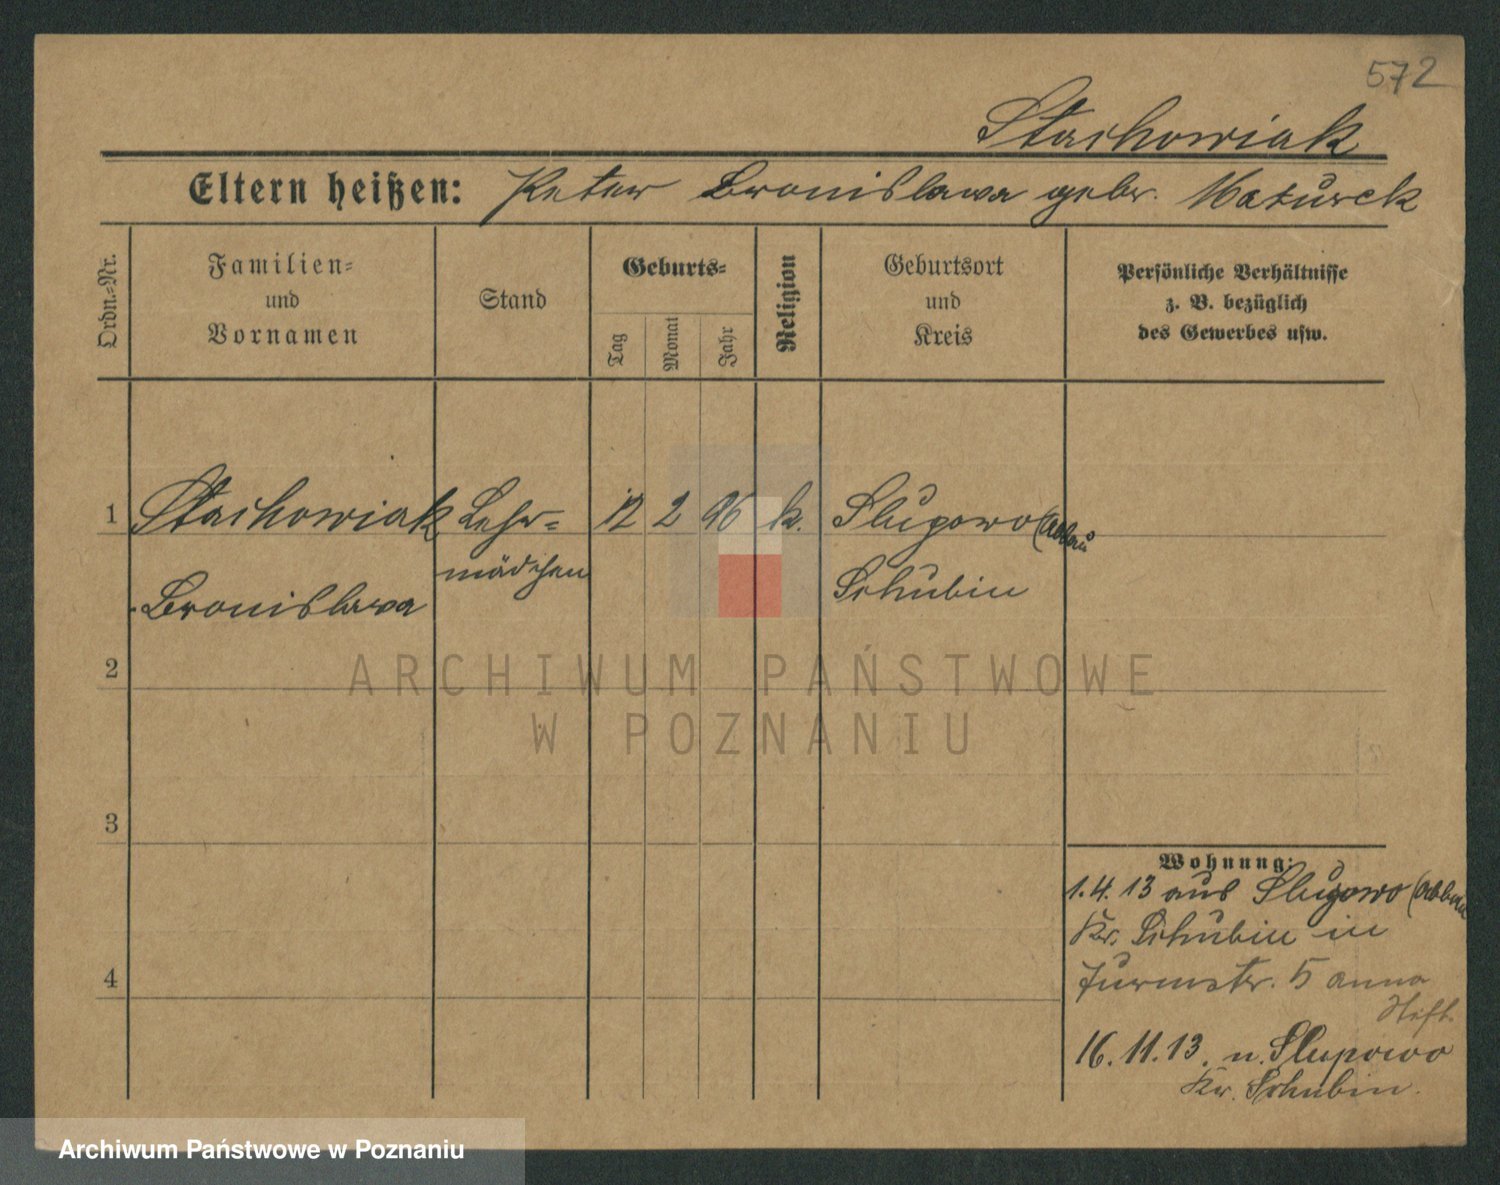 572
Stachowiak
Eltern heißen: Peter Bronislawa gebr. Maturek
Ordn.-Nr.
Familien-
und
Vornamen
Stand
Geburts-
Tag
Monat
Jahr
Religion
Geburtsort
und
Kreis
Persönliche Verhältnisse
z. B. bezüglich
des Gewerbes usw.
1 Stachowiak Lehr- 12 2 96 k. Slupowo (Abbau
mädchen Schubin
Bronislawa
2
3
4
Wohnung:
1.4.13 aus Slupowo (Abbau
Kr. Schubin in
Turmstr. 5 Anna
16.11.13. n. Slupowo
Kr. Schubin.
ARCHIWUM PAŃSTWOWE
W POZNANIU
Archiwum Państwowe w Poznaniu